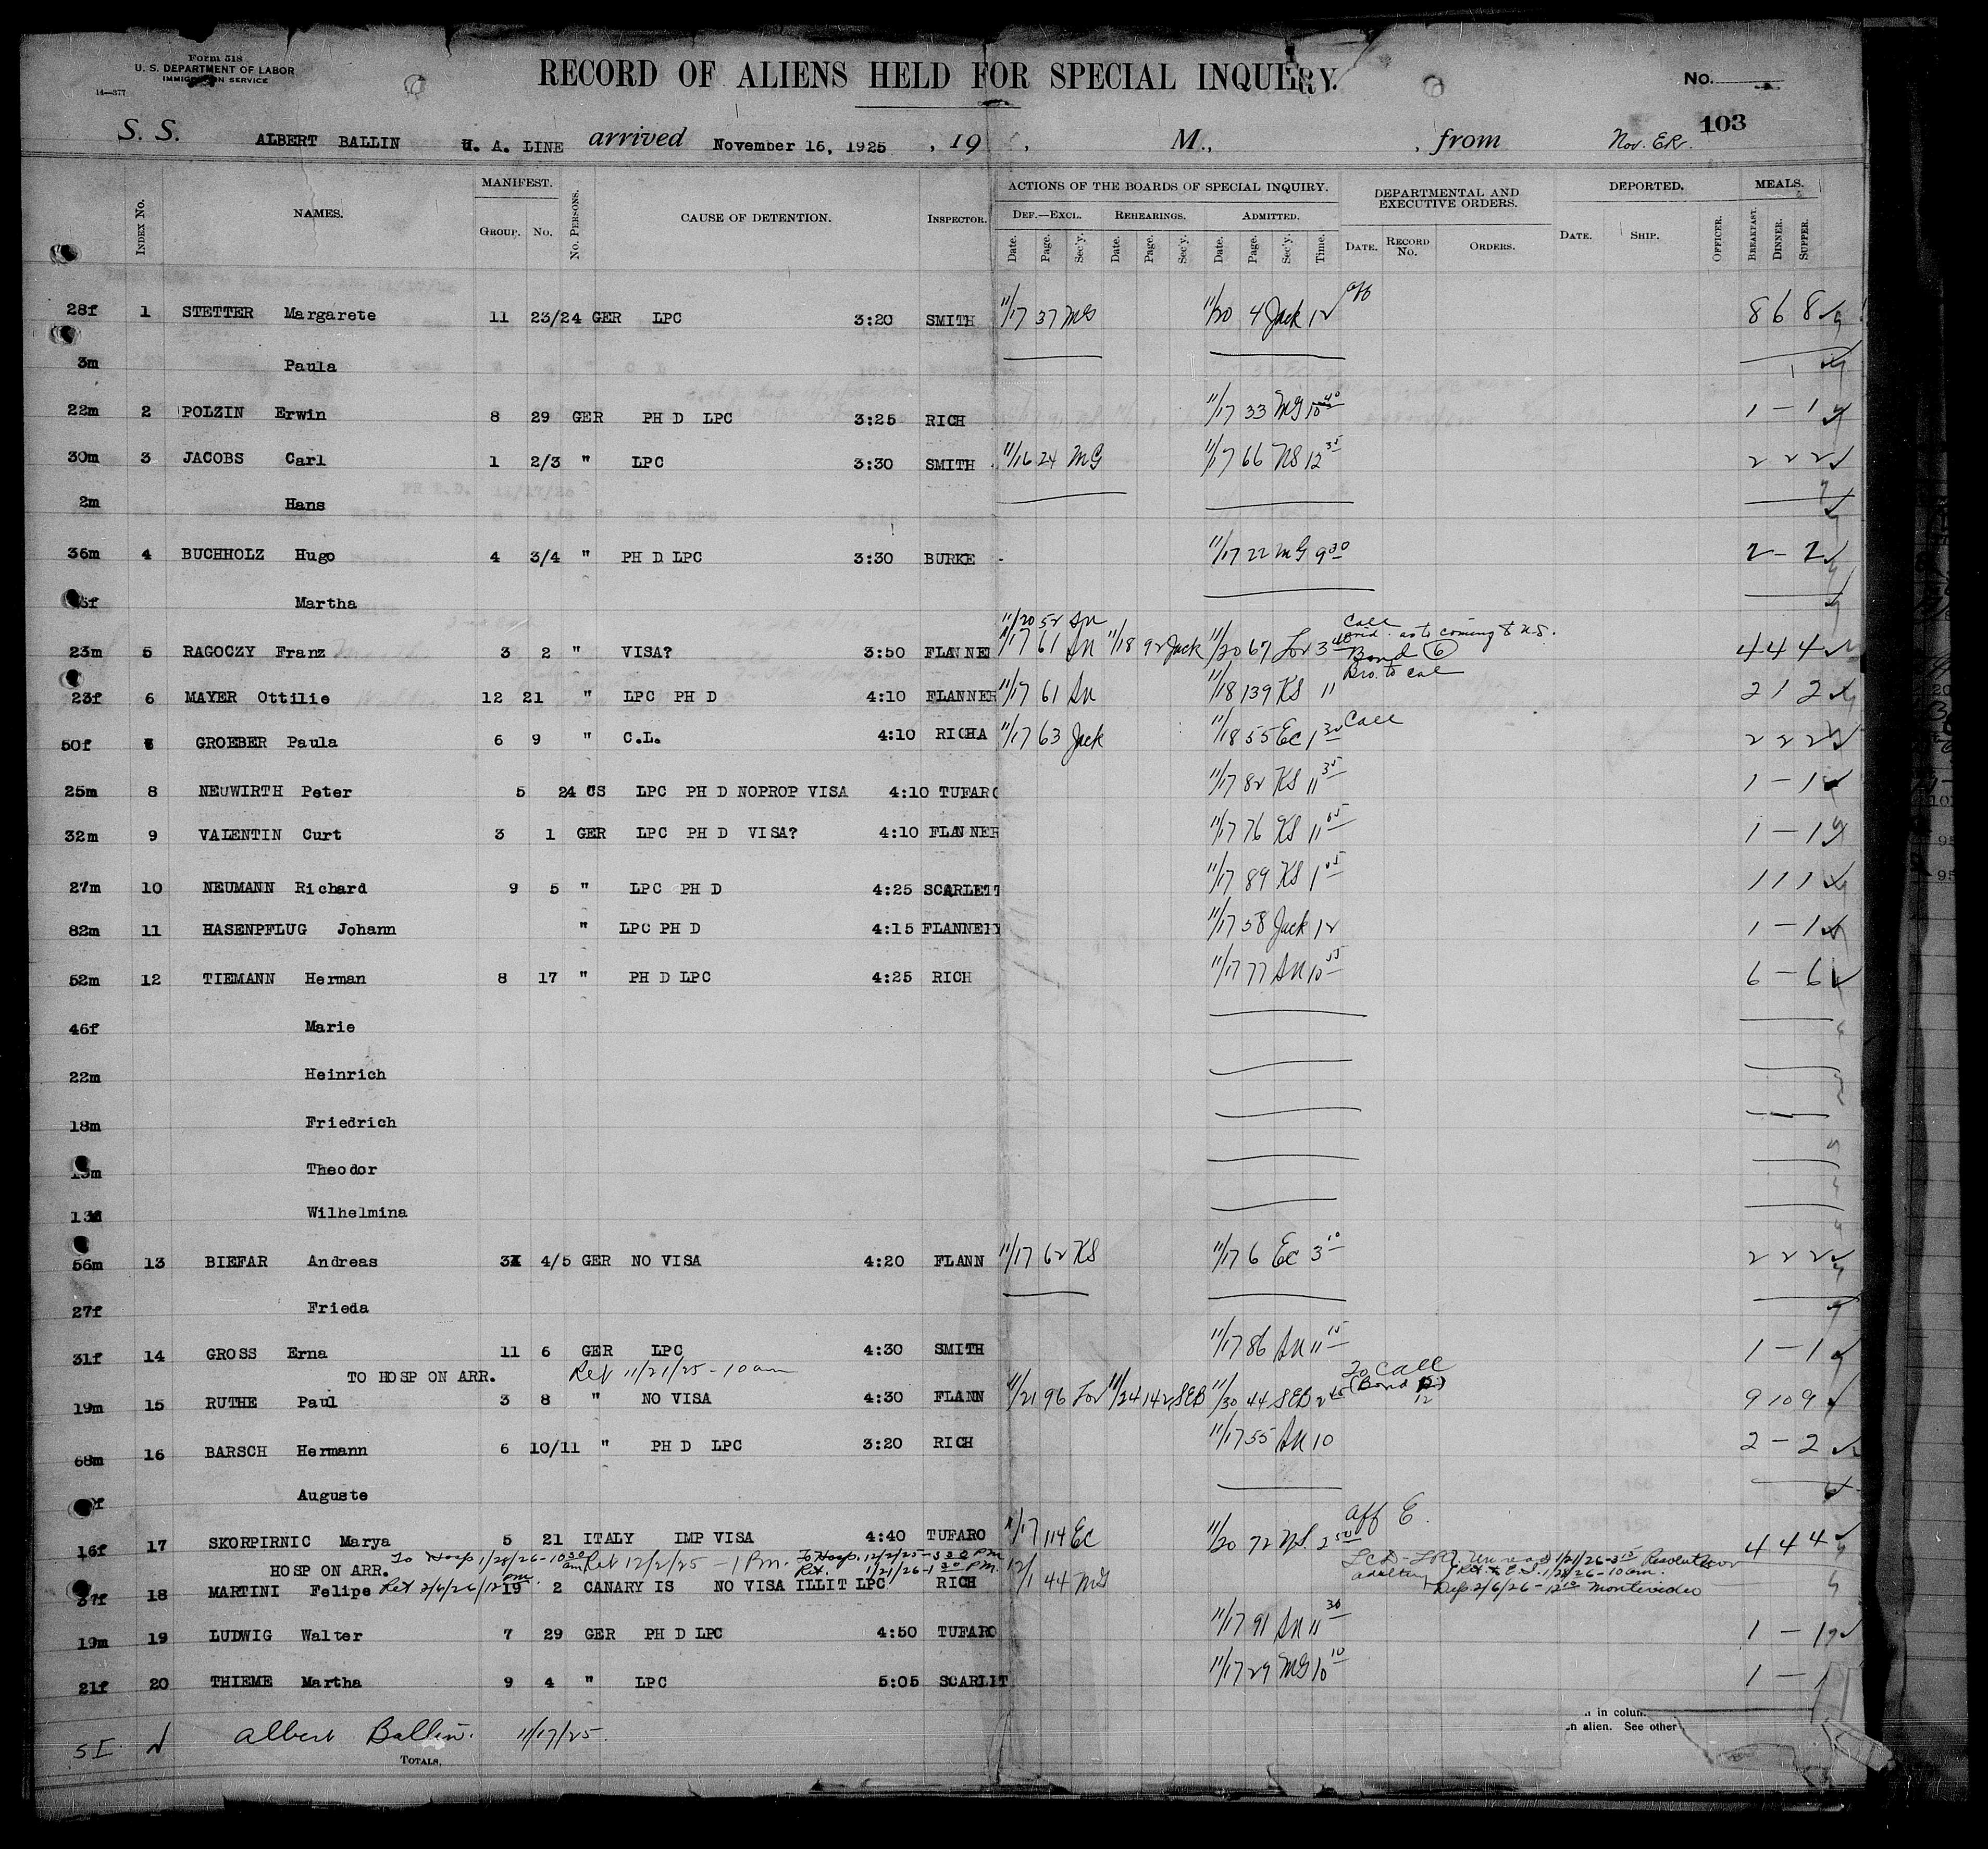 Form 518
U. S. DEPARTMENT OF LABOR
IMMIGRATION SERVICE
14—377
RECORD OF ALIENS HELD FOR SPECIAL INQUIRY.
No.
103
S. S. ALBERT BALLIN H. A. LINE arrived November 16, 1925 , 19 , M., , from Nov. ER.
INDEX No. NAMES. MANIFEST. GROUP. No. No. PERSONS. CAUSE OF DETENTION. INSPECTOR. ACTIONS OF THE BOARDS OF SPECIAL INQUIRY. DEPARTMENTAL AND EXECUTIVE ORDERS. DEPORTED. MEALS.
DEF.—EXCL. REHEARINGS. ADMITTED.
Date. Page. Sec'y. Date. Page. Sec'y. Date. Page. Sec'y. Time. DATE. RECORD No. ORDERS. DATE. SHIP. OFFICER. BREAKFAST. DINNER. SUPPER.
28f 1 STETTER Margarete 11 23/24 GER LPC 3:20 SMITH 11/17 37 MG 11/20 4 Jack 12 8 6 8
3m Paula
22m 2 POLZIN Erwin 8 29 GER PH D LPC 3:25 RICH 11/17 33 MG 10 40 1 – 1
30m 3 JACOBS Carl 1 2/3 " LPC 3:30 SMITH 11/16 24 MG 11/17 66 NS 12 35 2 2 2
2m Hans
36m 4 BUCHHOLZ Hugo 4 3/4 " PH D LPC 3:30 BURKE 11/17 22 MG 9 30 2 – 2
Martha
11/20 52 Call
23m 5 RAGOCZY Franz 3 2 " VISA? 3:50 FLANNE 11/17 61 11/18 92 Jack 11/20 67 Lov 3 as to coming to U.S. Bond 6 4 4 4
Bro. to call
23f 6 MAYER Ottilie 12 21 " LPC PH D 4:10 FLANNER 11/17 61 11/18 139 KS 11 2 1 2
50f 7 GROEBER Paula 6 9 " C.L. 4:10 RICHA 11/17 63 Jack 11/18 55 Ec 1 30 Call 2 2 2
25m 8 NEUWIRTH Peter 5 24 CS LPC PH D NOPROP VISA 4:10 TUFARO 11/17 82 KS 11 35 1 – 1
32m 9 VALENTIN Curt 3 1 GER LPC PH D VISA? 4:10 FLANNER 11/17 76 KS 11 05 1 – 1
27m 10 NEUMANN Richard 9 5 " LPC PH D 4:25 SCARLETT 11/17 89 KS 1 05 1 1 1
82m 11 HASENPFLUG Johann " LPC PH D 4:15 FLANNERY 11/17 58 Jack 12 1 – 1
52m 12 TIEMANN Herman 8 17 " PH D LPC 4:25 RICH 11/17 77 10 55 6 – 6
46f Marie
22m Heinrich
18m Friedrich
Theodor
13 Wilhelmina
56m 13 BIEFAR Andreas 3 4/5 GER NO VISA 4:20 FLANN 11/17 62 KS 11/17 6 Ec 3 10 2 2 2
27f Frieda
31f 14 GROSS Erna 11 6 GER LPC 4:30 SMITH 11/17 86 11 15 1 – 1
TO HOSP ON ARR. Ret 11/21/25 – 10 am To Call
19m 15 RUTHE Paul 3 8 " NO VISA 4:30 FLANN 11/21 96 Lov 11/24 142 SEB 11/30 44 SEB 2 45 (Bond 12 9 10 9
68m 16 BARSCH Hermann 6 10/11 " PH D LPC 3:20 RICH 11/17 55 10 2 – 2
Auguste
16f 17 SKORPIRNIC Marya 5 21 ITALY IMP VISA 4:40 TUFARO 11/17 114 Ec 11/20 72 NS. 2 50 Aff E. 4 4 4
HOSP ON ARR. To Hosp 1/28/26 – 10 30 am Ret 12/2/25 – 1 Pm. To Hosp. 12/2/25 – 3 30 PM Ret. 1/21/26 – 1 30 PM.
37f 18 MARTINI Felipe Ret 2/6/26/12 pm. 19 2 CANARY IS NO VISA ILLIT LPC RICH 12/1 44 MG 1/28/26 – 10 am.
Dep 2/6/26 – 12 10 Montevideo
19m 19 LUDWIG Walter 7 29 GER PH D LPC 4:50 TUFARO 11/17 91 11 30 1 – 1
21f 20 THIEME Martha 9 4 " LPC 5:05 SCARLIT 11/17 29 MG 10 10 1 –
in colum
n alien. See other
SI Albert Ballin. 11/17/25.
TOTALS,